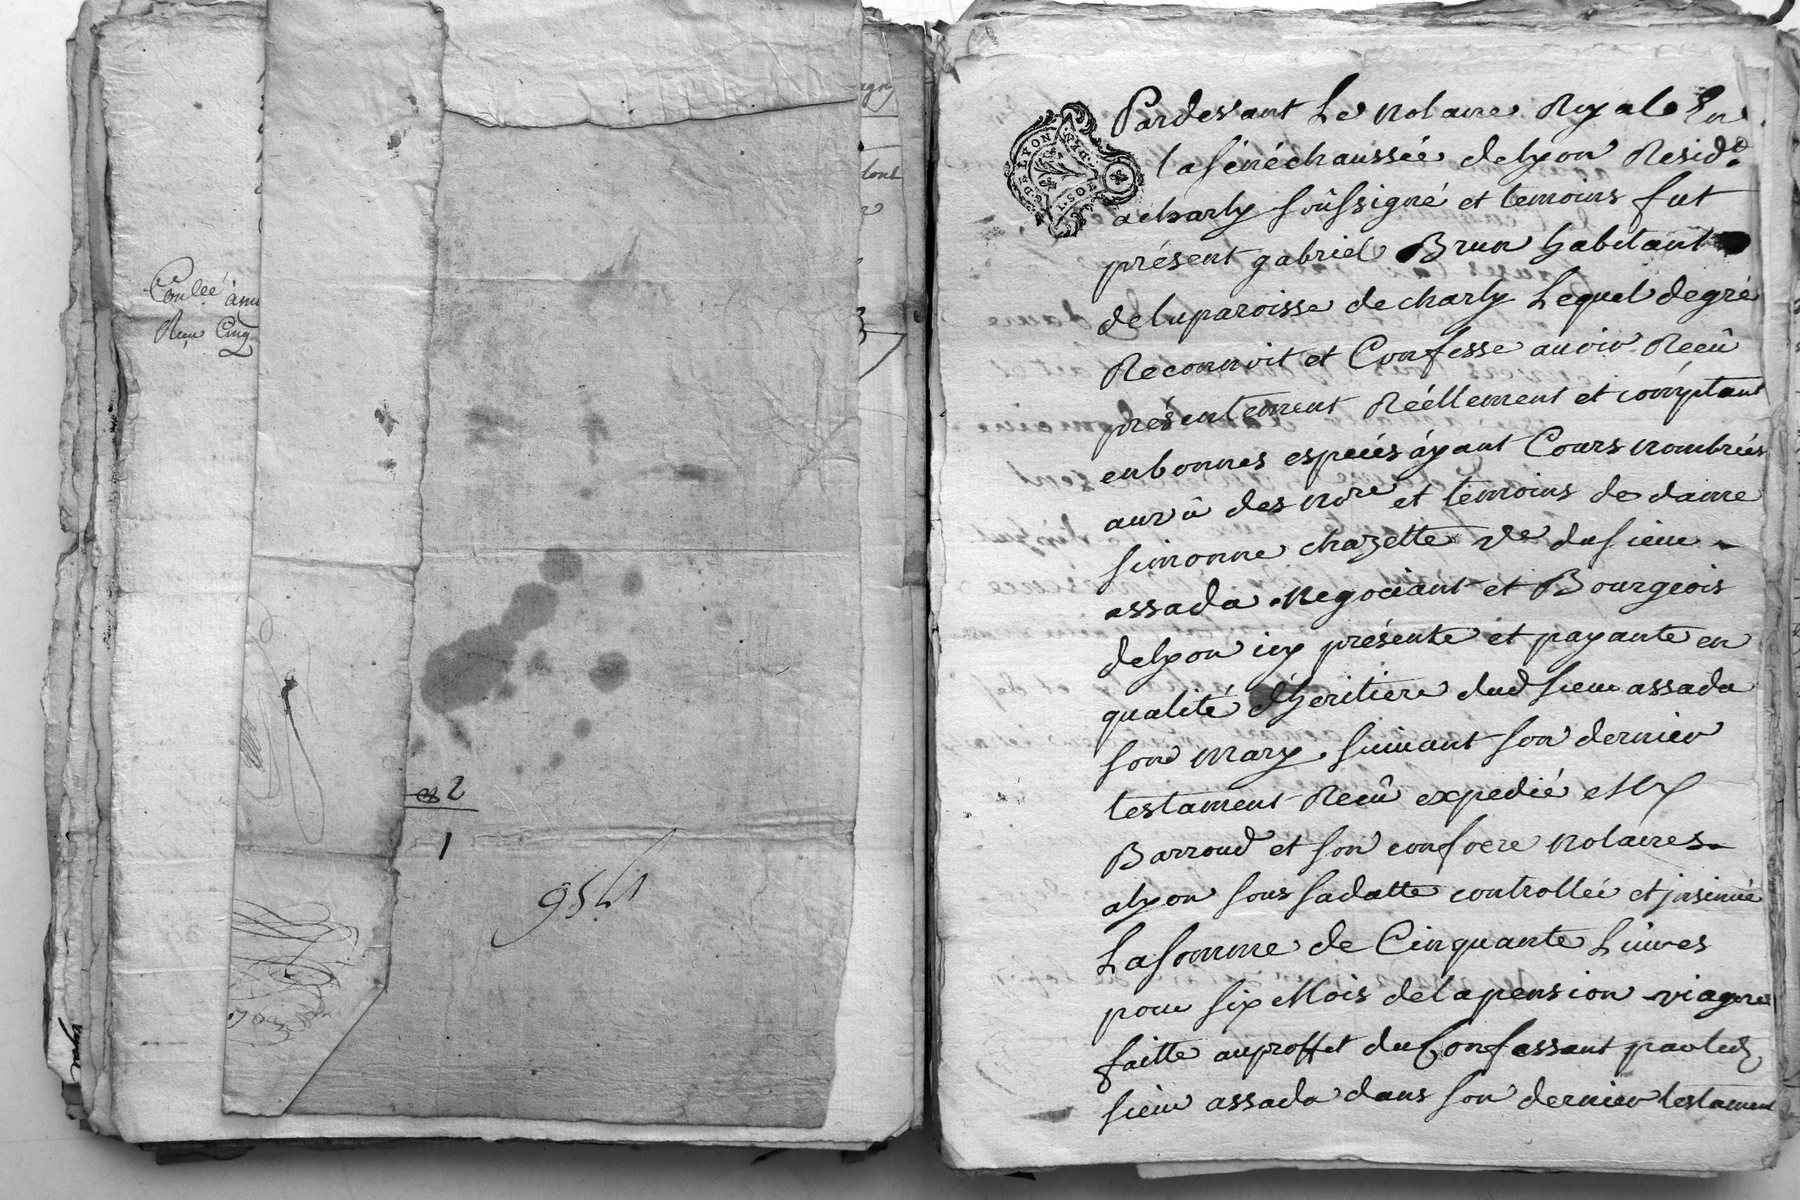 Conlée
Reçu Cinq
2
1
954
DE LYON
Pardevant Le Notaire Royal En
la sénéchaussée delyon Resid.
acharly soussigné et temoins fut
présent gabriel Brun habitant
delaparoisse decharly Lequel degré
Reconnoit et Confesse avoir Reçû
présentement Réèllement et comptant
enbonnes espeiés áyant Cours nombrées
aux vû des nore et temoins de dame
simonne chazette ve du sieur
assada Negociant et Bourgeois
delyon icy présente et payante en
qualité d'heritiere dud sieur assada
son mary, suivant son dernier
testament Reçû expedié Me
Barroud et son confrere notaires
alyon sous sadatte controllée et insinué
Lasomme de Cinquante Livres
pour six Mois delapension viagere
faitte auproffet du Confessant parled
sieur assada dans son dernier testament